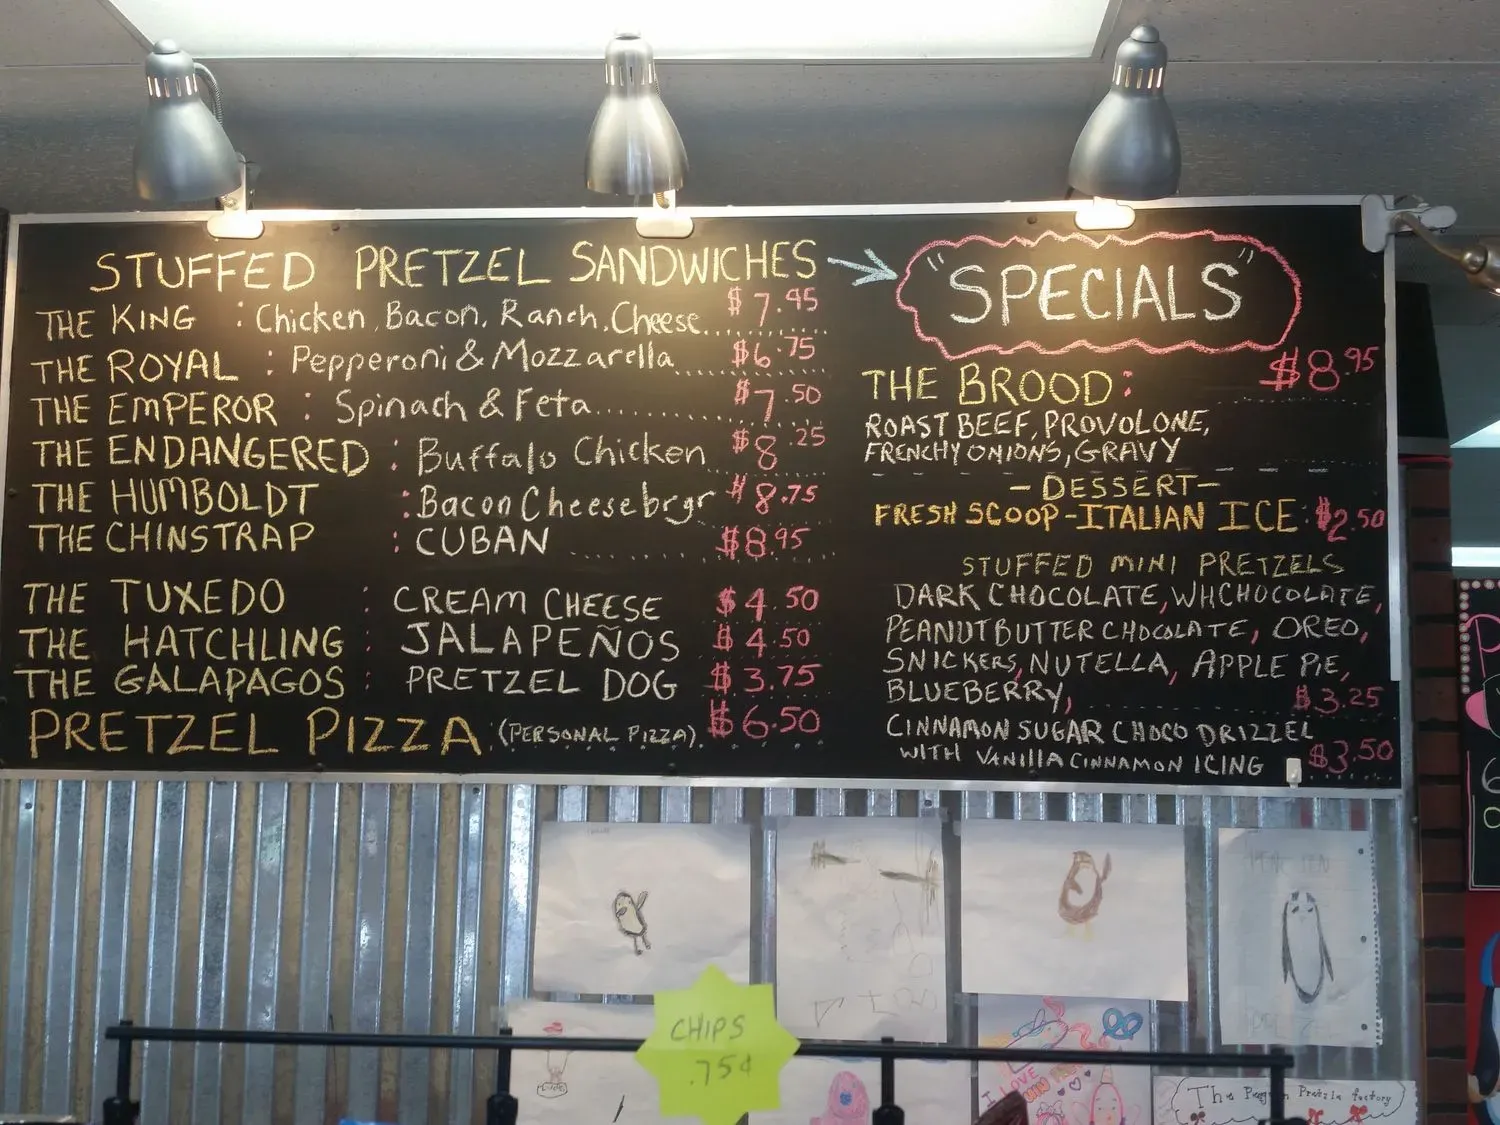 STUFFED PRETZEL SANDWICHES
THE KING : Chicken, Bacon, Ranch, Cheese.. $7.95
THE ROYAL : Pepperoni & Mozzarella $6.75
THE EMPEROR : Spinach & Feta $7.50
THE ENDANGERED : Buffalo Chicken $8.25
THE HUMBOLDT : Bacon Cheesebrgr $8.75
THE CHINSTRAP : CUBAN $8.95
THE TUXEDO : CREAM CHEESE $4.50
THE HATCHLING : JALAPEÑOS $4.50
THE GALAPAGOS : PRETZEL DOG $3.75
PRETZEL PIZZA (PERSONAL PIZZA) $6.50
"SPECIALS"
THE BROOD: $8.95
ROAST BEEF, PROVOLONE,
FRENCHY ONIONS, GRAVY
-DESSERT-
FRESH SCOOP-ITALIAN ICE $2.50
STUFFED MINI PRETZELS
DARK CHOCOLATE, WHCHOCOLATE,
PEANUTBUTTER CHOCOLATE, OREO,
SNICKERS, NUTELLA, APPLE PIE,
BLUEBERRY, $3.25
CINNAMON SUGAR CHOCO DRIZZEL
WITH VANILLA CINNAMON ICING $3.50
CHIPS
.75¢
I LOVE
The Pretzle factory